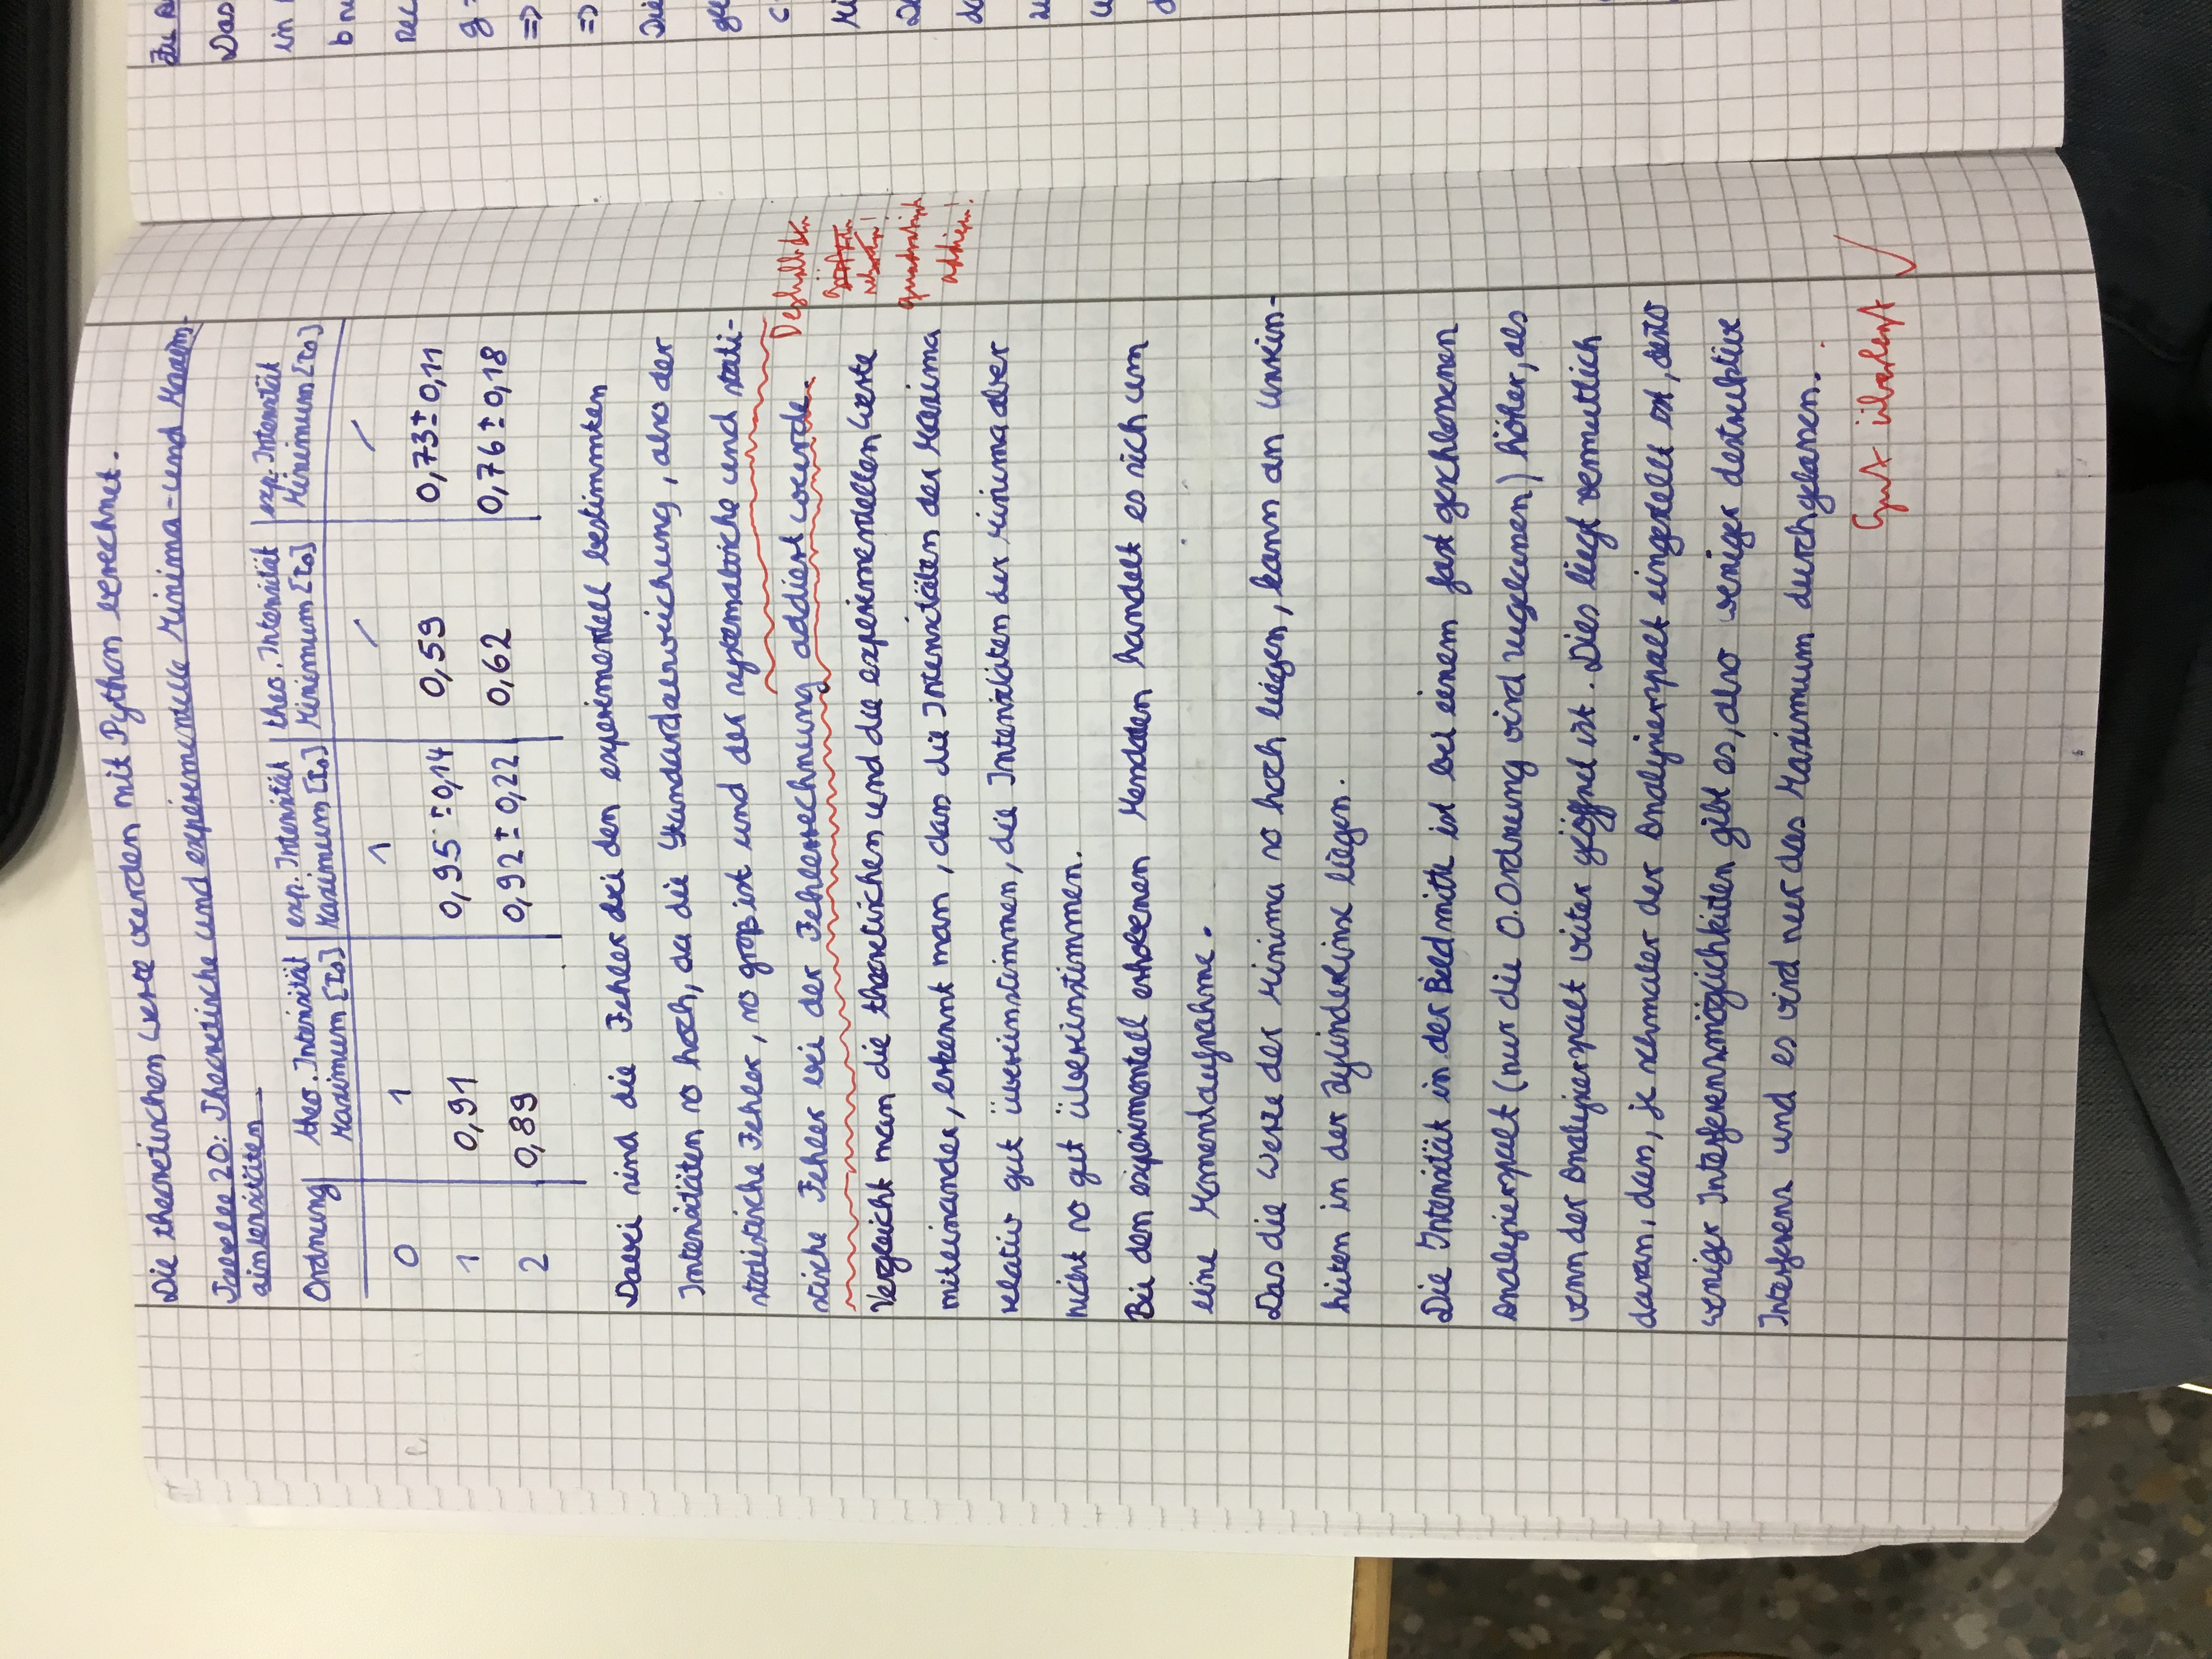 Die theoretischen Werte werden mit Python berechnet.
Tabelle 20: Theoretische und experimentelle Minima- und Maxim-
aintensitäten
Ordnung | theo. Intensität Maximum [I₀] | exp. Intensität Maximum [I₀] | theo. Intensität Minimum [I₀] | exp. Intensität Minimum [I₀]
0 | 1 | 1 | / | /
1 | 0,91 | 0,95 ± 0,14 | 0,59 | 0,73 ± 0,11
2 | 0,89 | 0,92 ± 0,22 | 0,62 | 0,76 ± 0,18
Dabei sind die Fehler bei den experimentell bestimmten
Intensitäten so hoch, da die Standardabweichung, also der
statistische Fehler, so groß ist und der systematische und stati-
stische Fehler bei der Fehlerrechnung addiert wurde.
Deshalb
quadratisch
addieren!
Vergleicht man die theoretischen und die experimentellen Werte
miteinander, erkennt man, dass die Intensitäten der Maxima
relativ gut übereinstimmen, die Intensitäten der Minima aber
nicht so gut übereinstimmen.
Bei den experimentell erhobenen Messdaten handelt es sich um
eine Momentaufnahme.
Das die Werte der Minima so hoch liegen, kann an Unrein-
heiten in der Zylinderlinse liegen.
Die Intensität in der Bildmitte ist bei einem fast geschlossenen
Analysierspalt (nur die 0. Ordnung wird zugelassen) höher, als
wenn der Analysierspalt weiter geöffnet ist. Dies liegt vermutlich
daran, dass, je schmaler der Analysierspalt eingestellt ist, desto
weniger Interferenzmöglichkeiten gibt es, also weniger destruktive
Interferenz und es wird nur das Maximum durchgelassen.
Gut überlegt ✓
Das
in
=>
=>
Die